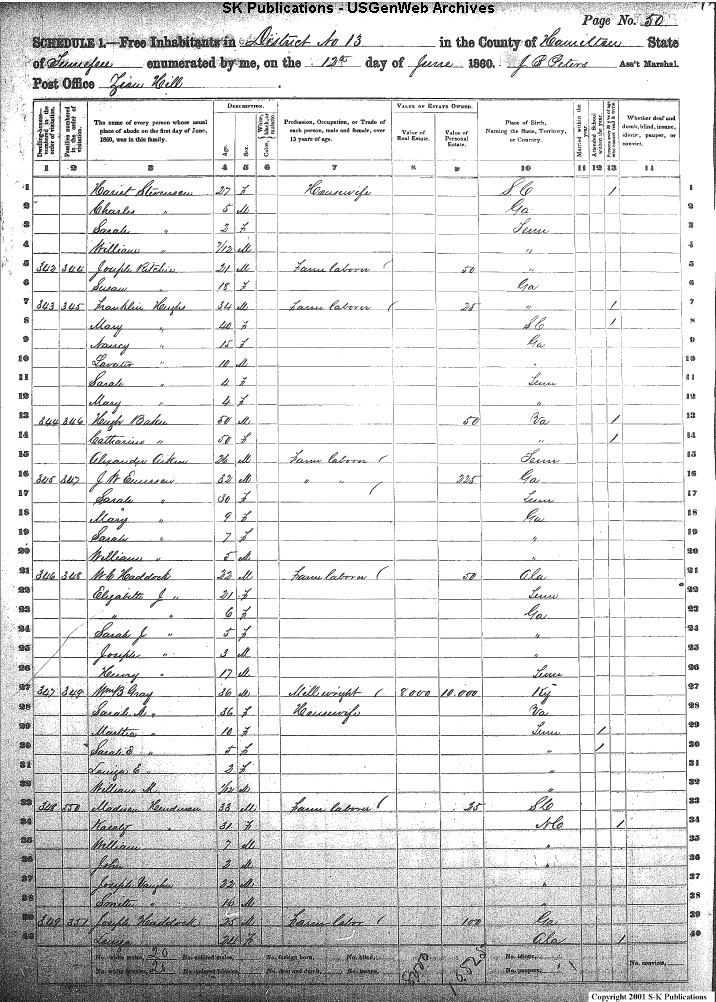 SK Publications - USGenWeb Archives
Page No. 50
SCHEDULE 1.—Free Inhabitants in District No 13 in the County of Hamilton State
of Tennessee enumerated by me, on the 12th day of June 1860. J B Peters Ass't Marshal.
Post Office Zion Hill
Dwelling-houses—numbered in the order of visitation. Families numbered in the order of visitation. The name of every person whose usual place of abode on the first day of June, 1860, was in this family. DESCRIPTION. Age. Sex. Color, White, black, or mulatto. Profession, Occupation, or Trade of each person, male and female, over 15 years of age. VALUE OF ESTATE OWNED. Value of Real Estate. Value of Personal Estate. Place of Birth, Naming the State, Territory, or Country. Married within the year. Attended School within the year. Whether deaf and dumb, blind, insane, idiotic, pauper, or convict.
1 2 3 4 5 6 7 8 9 10 11 12 13 14
1 Hariet Stevenson 27 F Housewife S.C 1 1
2 Charles " 5 M Ga 2
3 Sarah " 2 F Tenn 3
4 William " 7/12 M " 4
5 342 344 Joseph Ritchie 21 M Farm laborer 50 " 5
6 Susan " 18 F Ga 6
7 343 345 Franklin Hughs 34 M Farm laborer 25 " 1 7
8 Mary " 40 F S.C 1 8
9 Nancy " 15 F Ga 9
10 " 10 M " 10
11 Sarah " 4 F Tenn 11
12 Mary " 4 F " 12
13 344 346 Hugh Baker 50 M 50 Va 1 13
14 Catharine " 50 F " 1 14
15 Alexander Aiken 26 M Farm laborer Tenn 15
16 345 347 J W Emerson 32 M " " 225 Ga 16
17 Sarah " 30 F Tenn 17
18 Mary " 9 F Ga 18
19 Sarah " 7 F " 19
20 William " 5 M " 20
21 346 348 W C Haddock 22 M Farm laborer 50 Ala 21
22 Elizabeth J " 21 F Tenn 22
23 " " 6 F Ga 23
24 Sarah J " 5 F " 24
25 Joseph " 3 M " 25
26 Henry " 17 M Tenn 26
27 347 349 Wm B Gray 36 M Millwright 8000 10.000 Ky 27
28 Sarah A " 36 F Housewife Va 28
29 Martha " 10 F Tenn 1 29
30 Sarah E " 5 F " 1 30
31 Louiza E " 2 F " 31
32 William M. M " 32
33 348 350 Madison 33 M Farm laborer 25 S.C 33
34 " 31 F N.C 1 34
35 William " 7 M " 35
36 John " 2 M " 36
37 Joseph Vaughn 22 M " 37
38 Smith " 16 M " 38
39 349 351 Joseph Haddock 25 M Farm labor 100 Ga 39
40 Louiza " F Ala 1 40
No. white males, 20 No. colored males, No. foreign born, No. blind, No. idiotic, No. convicts,
No. white females, 20 No. colored females, No. deaf and dumb, No. insane, No. paupers,
8000
Copyright 2001 S-K Publications